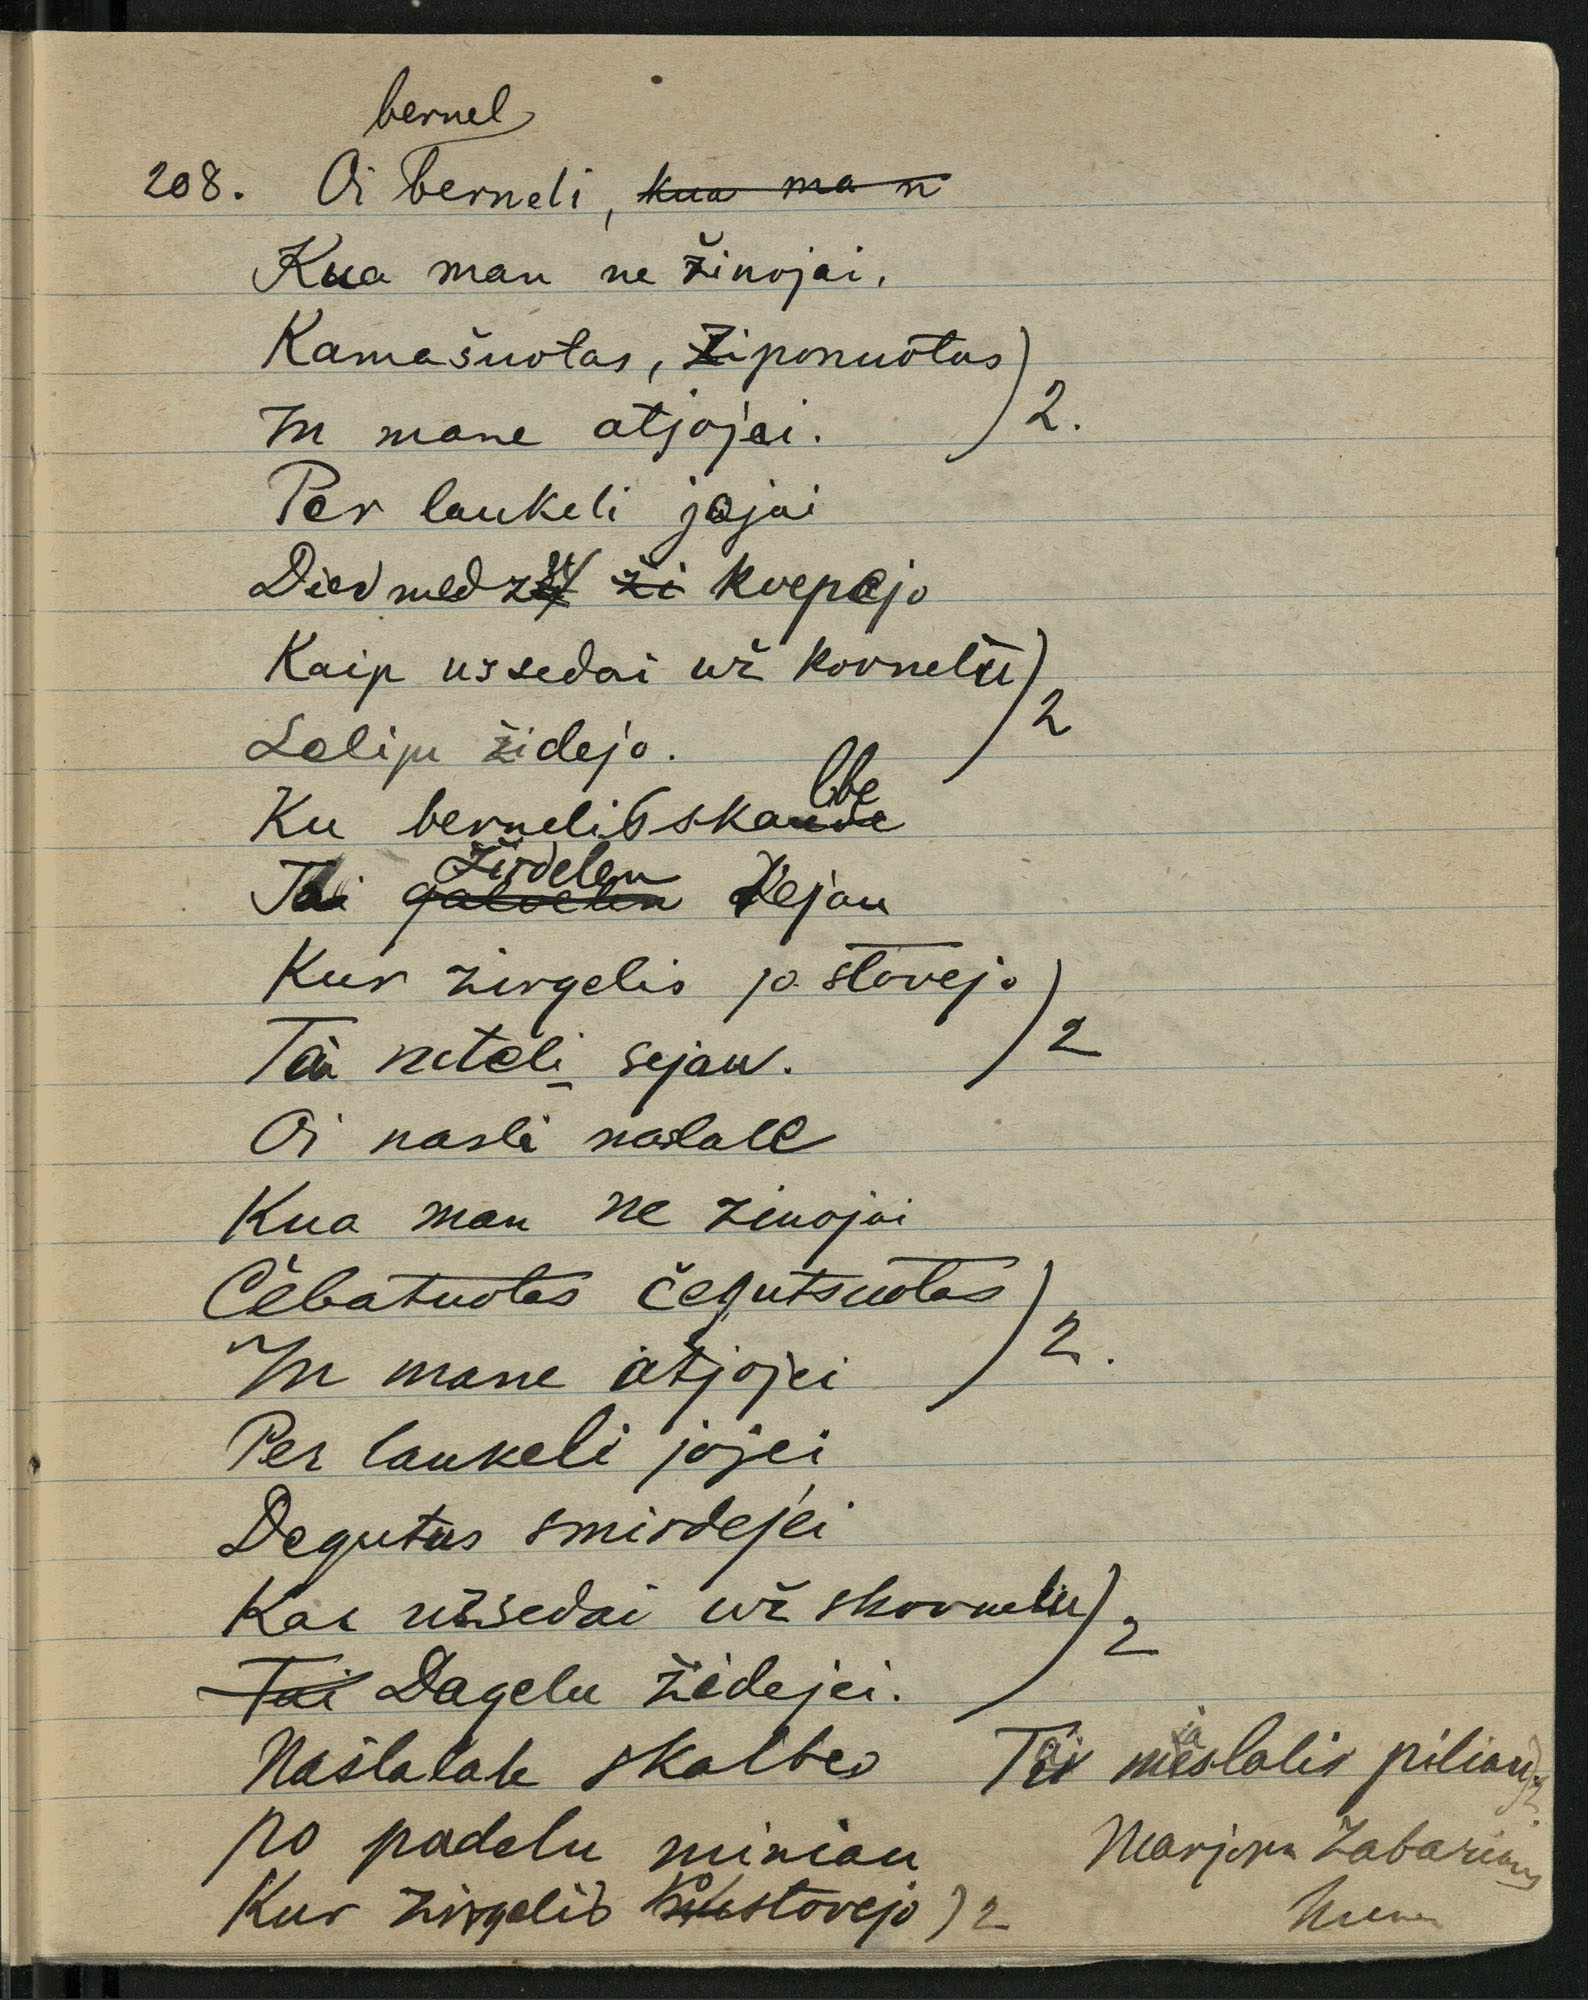 bernel
208. Oi berneli, kua man
Kua man ne žinojai,
Kamašuotas, žiponuotas ) 2.
In mane atjojai.
Per laukeli jojai
Diedmedžu ži kvepejo
Kaip ussedai už kornelu ) 2
Leliju židejo.
Ku bernelis skalbe
Tai žirdelem dejau
Kur zirgelis jo stovejo ) 2
Tai ruteli sejau.
Oi našli našlale
Kua man ne zinojai
Čebatuotas čegutsuotas ) 2.
In mane atjojei
Per laukeli jojei
Degutus smirdejei
Kai užsedai už skornelu ) 2
Tai Dagelu židejei.
Našlalale skalbes
po padelu miniau
Kur zirgelis stovejo ) 2
Tai mešlalis piliau )2.
Marjona